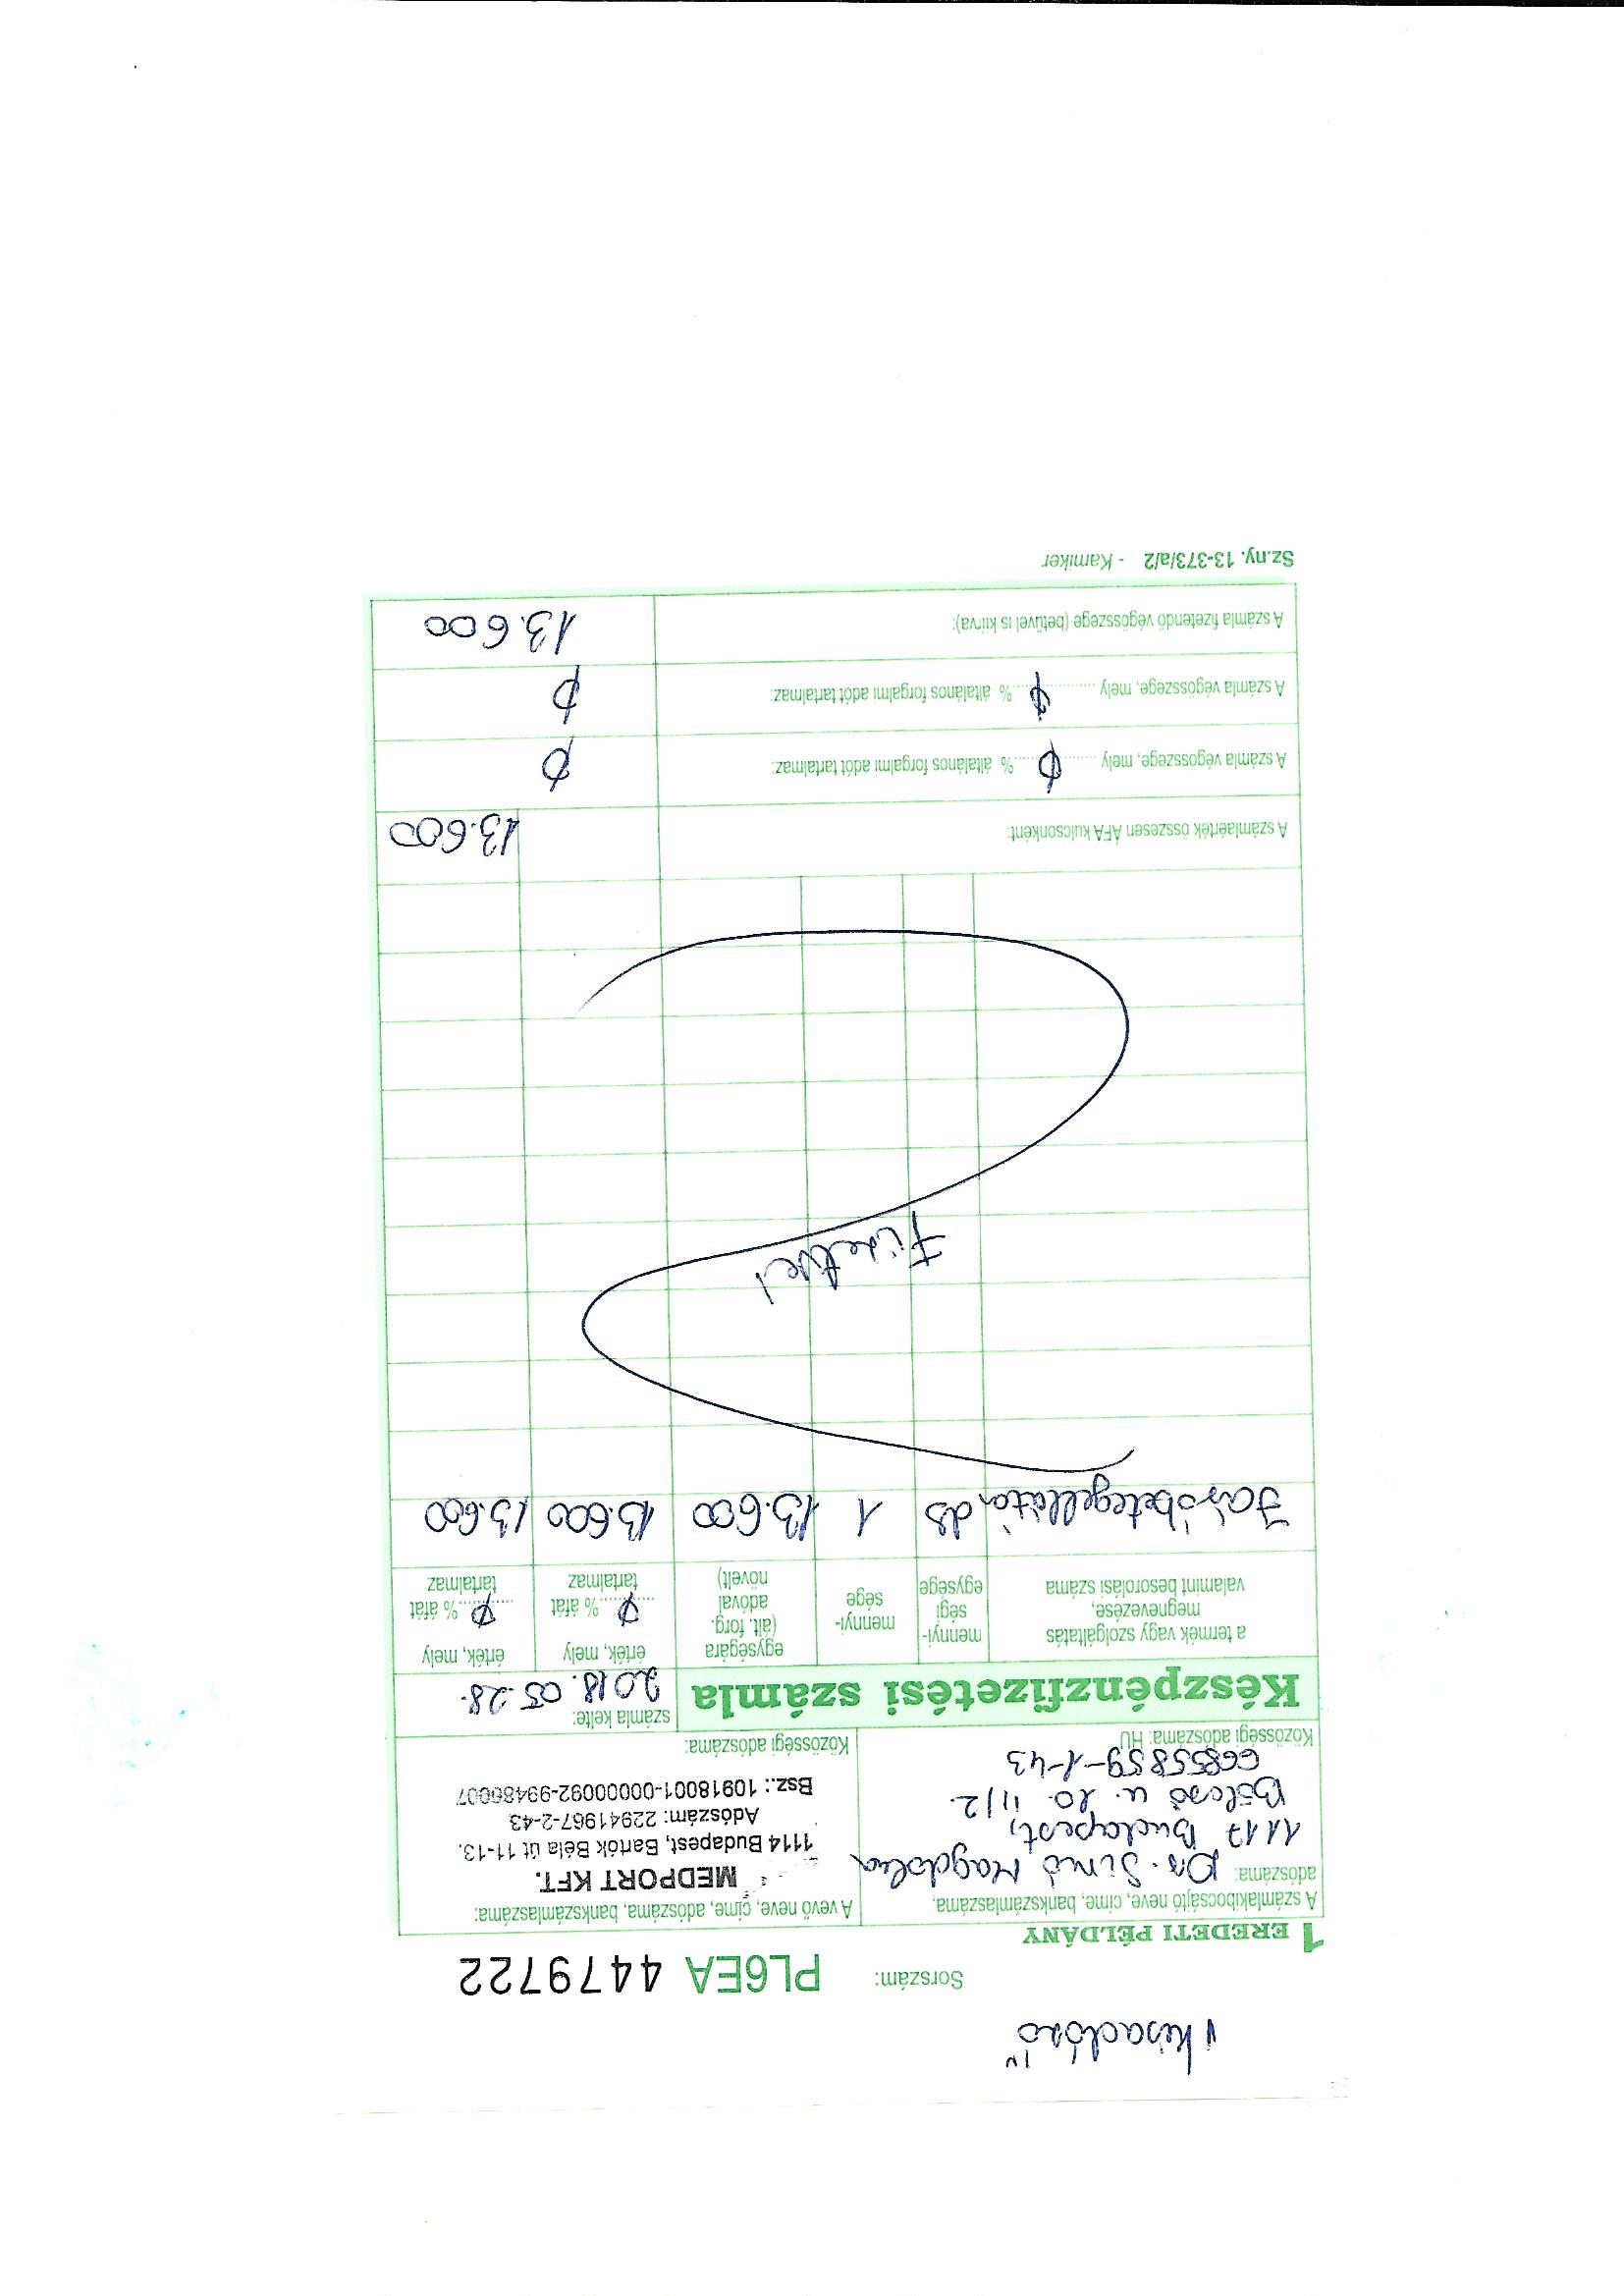 "kisadózó"
Sorszám: PL6EA 4479722
1 EREDETI PÉLDÁNY
A számlakibocsájtó neve, címe, bankszámlaszáma,
adószáma: Dr. Simó Magdolna
1117 Budapest,
u. 20. II/2.
66855859-1-43
Közösségi adószáma: HU
A vevő neve, címe, adószáma, bankszámlaszáma:
MEDPORT KFT.
1114 Budapest, Bartók Béla út 11-13.
Adószám: 22941967-2-43
Bsz.: 10918001-00000092-99486007
Közösségi adószáma:
Készpénzfizetési számla
számla kelte:
2018. 05. 28.
a termék vagy szolgáltatás
megnevezése,
valamint besorolási száma
mennyi-
ségi
egysége
mennyi-
sége
egységára
(ált. forg.
adóval
növelt)
érték, mely
0 % áfát
tartalmaz
érték, mely
0 % áfát
tartalmaz
Járóbetegellátás db 1 13.600 13.600 13.600
Fizetve!
A számlaérték összesen ÁFA kulcsonként: 13.600
A számla végösszege, mely 0 % általános forgalmi adót tartalmaz: 0
A számla végösszege, mely 0 % általános forgalmi adót tartalmaz: 0
A számla fizetendő végösszege (betűvel is kiírva): 13.600
Sz.ny. 13-373/a/2 - Karniker